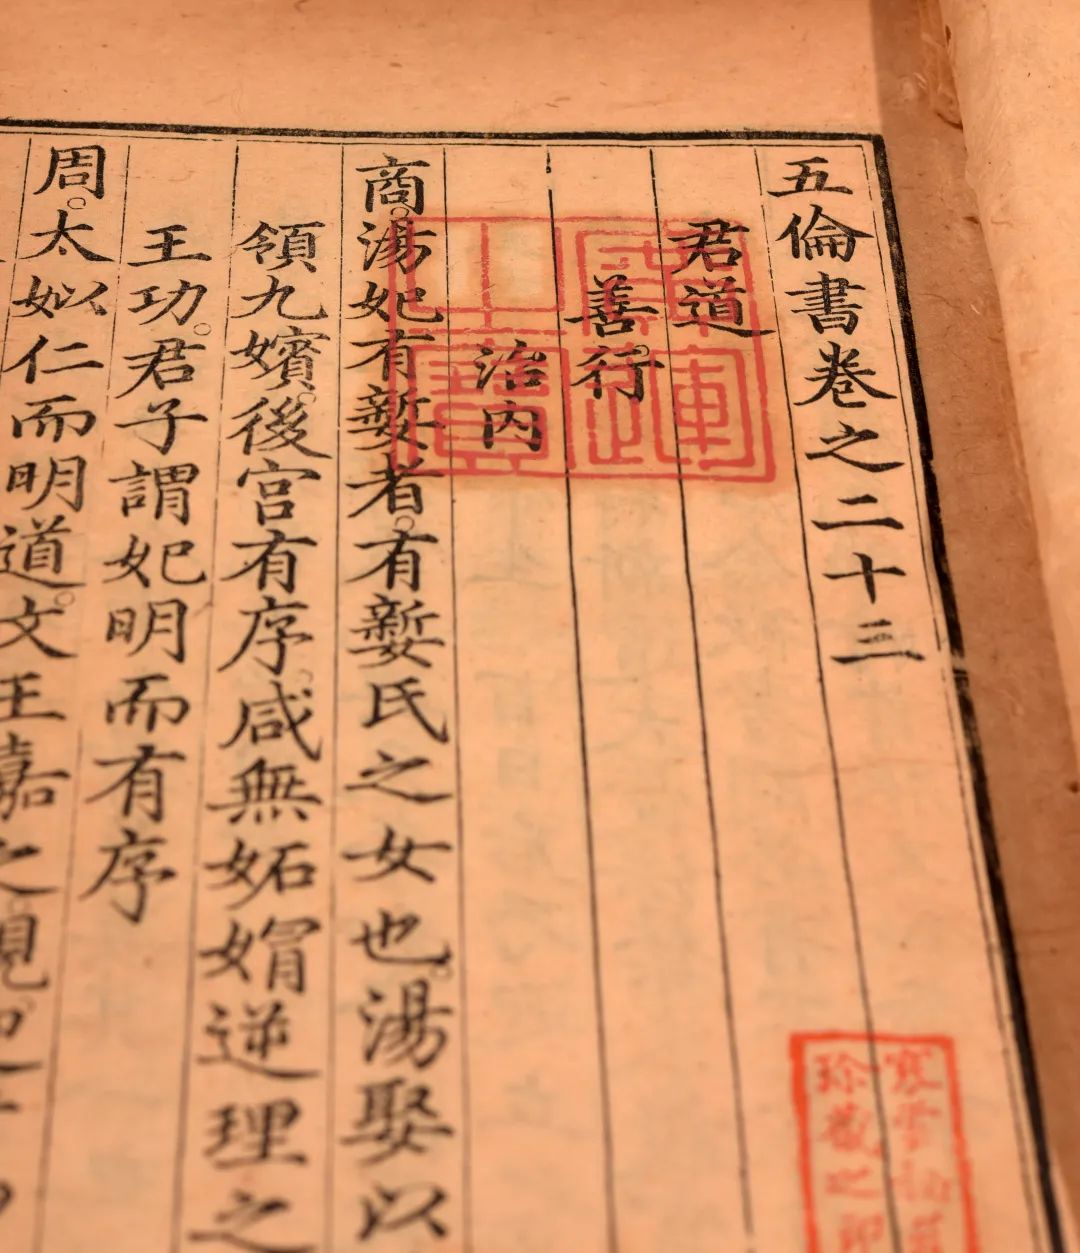 五倫書卷之二十三
君道
善行
治內
商。湯妃有㜪者。有㜪氏之女也。湯娶以
領九嬪。後宮有序。咸無妬媢逆理之
王功。君子謂妃明而有序
周。太姒仁而明道。文王嘉之
寒雲秘笈
珍藏之印